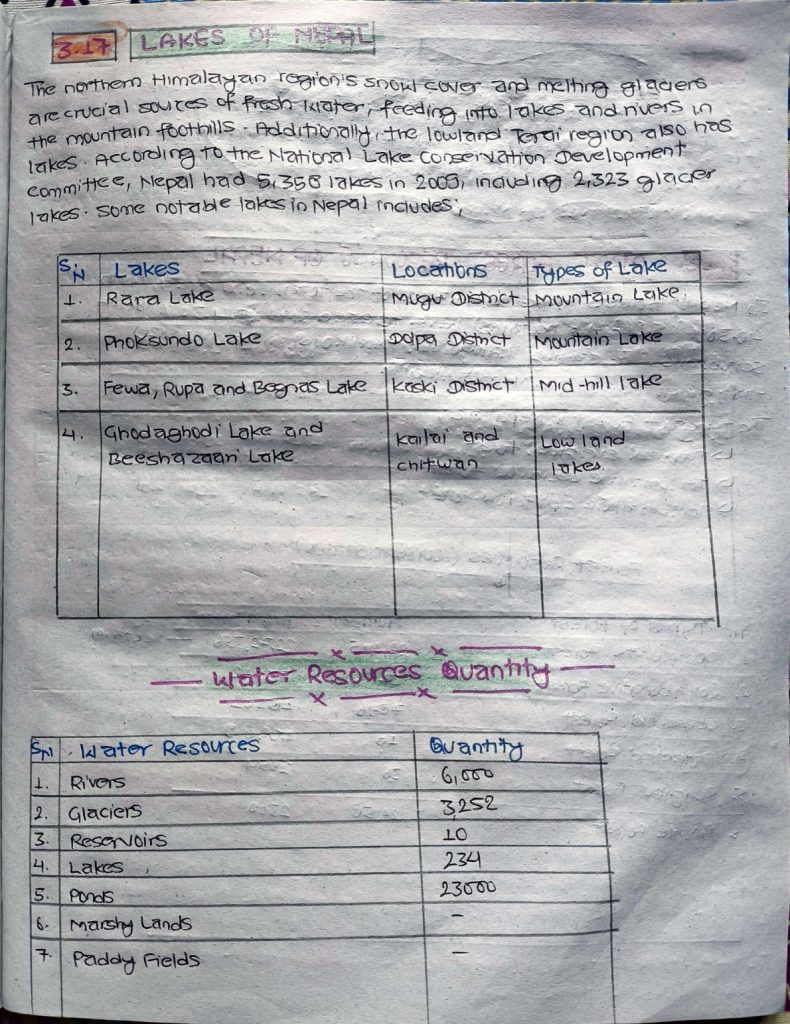 3.17 LAKES OF NEPAL
The northern Himalayan region's snow cover and melting glaciers
are crucial sources of fresh water, feeding into lakes and rivers in
the mountain foothills. Additionally, the lowland Terai region also has
lakes. According to the National Lake Conservation Development
committee, Nepal had 5,358 lakes in 2009, including 2,323 glacier
lakes. Some notable lakes in Nepal includes;
S.N Lakes Locations Types of Lake
1. Rara Lake Mugu District Mountain Lake.
2. Phoksundo Lake Dolpa District Mountain Lake
3. Fewa, Rupa and Begnas Lake Kaski District Mid-hill lake
4. Ghodaghodi Lake and Kailai and Low land
Beeshazaari Lake chitwan lakes.
Water Resources Quantity
SN Water Resources Quantity
1. Rivers 6,000
2. Glaciers 3,252
3. Reservoirs 10
4. Lakes 234
5. Ponds 23000
6. Marshy Lands -
7. Paddy Fields -